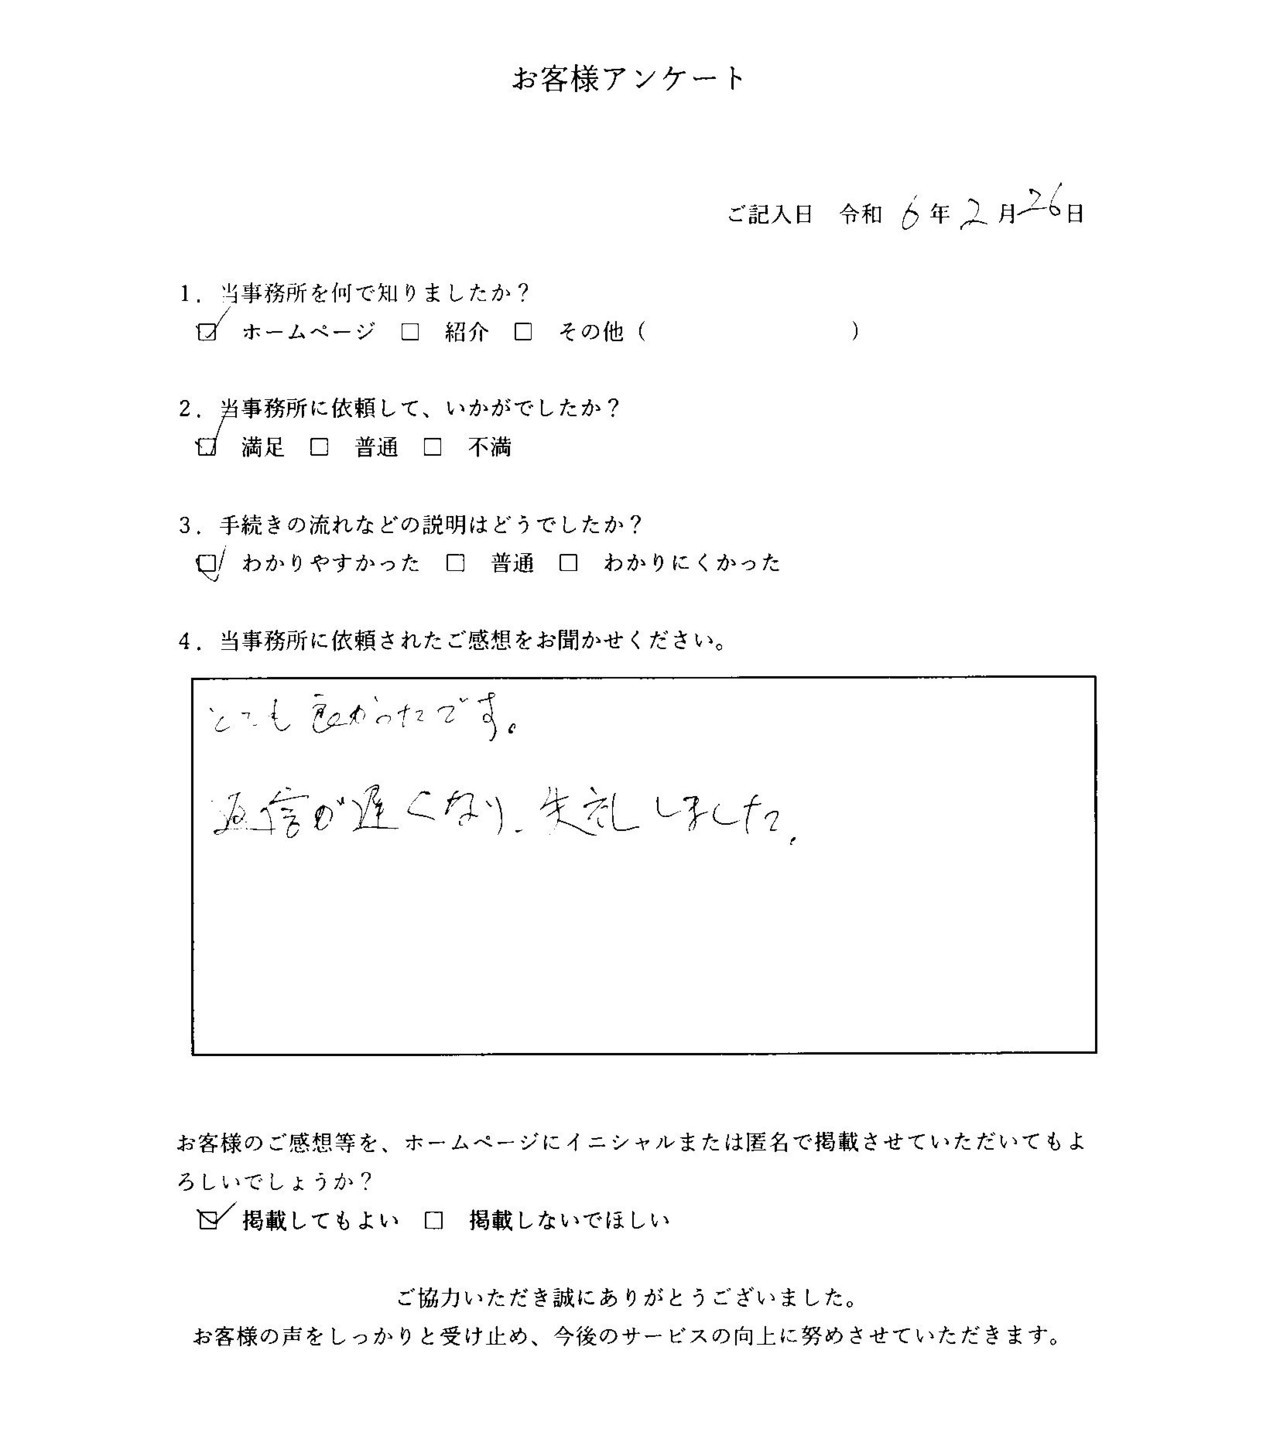 お客様アンケート
ご記入日　令和 6年 2月 26日
1．当事務所を何で知りましたか？
☑ ホームページ □ 紹介 □ その他（　　　　　　　　　）
2．当事務所に依頼して、いかがでしたか？
☑ 満足 □ 普通 □ 不満
3．手続きの流れなどの説明はどうでしたか？
☑ わかりやすかった □ 普通 □ わかりにくかった
4．当事務所に依頼されたご感想をお聞かせください。
とても良かったです。
返信が遅くなり、失礼しました。
お客様のご感想等を、ホームページにイニシャルまたは匿名で掲載させていただいてもよ
ろしいでしょうか？
☑ 掲載してもよい □ 掲載しないでほしい
ご協力いただき誠にありがとうございました。
お客様の声をしっかりと受け止め、今後のサービスの向上に努めさせていただきます。